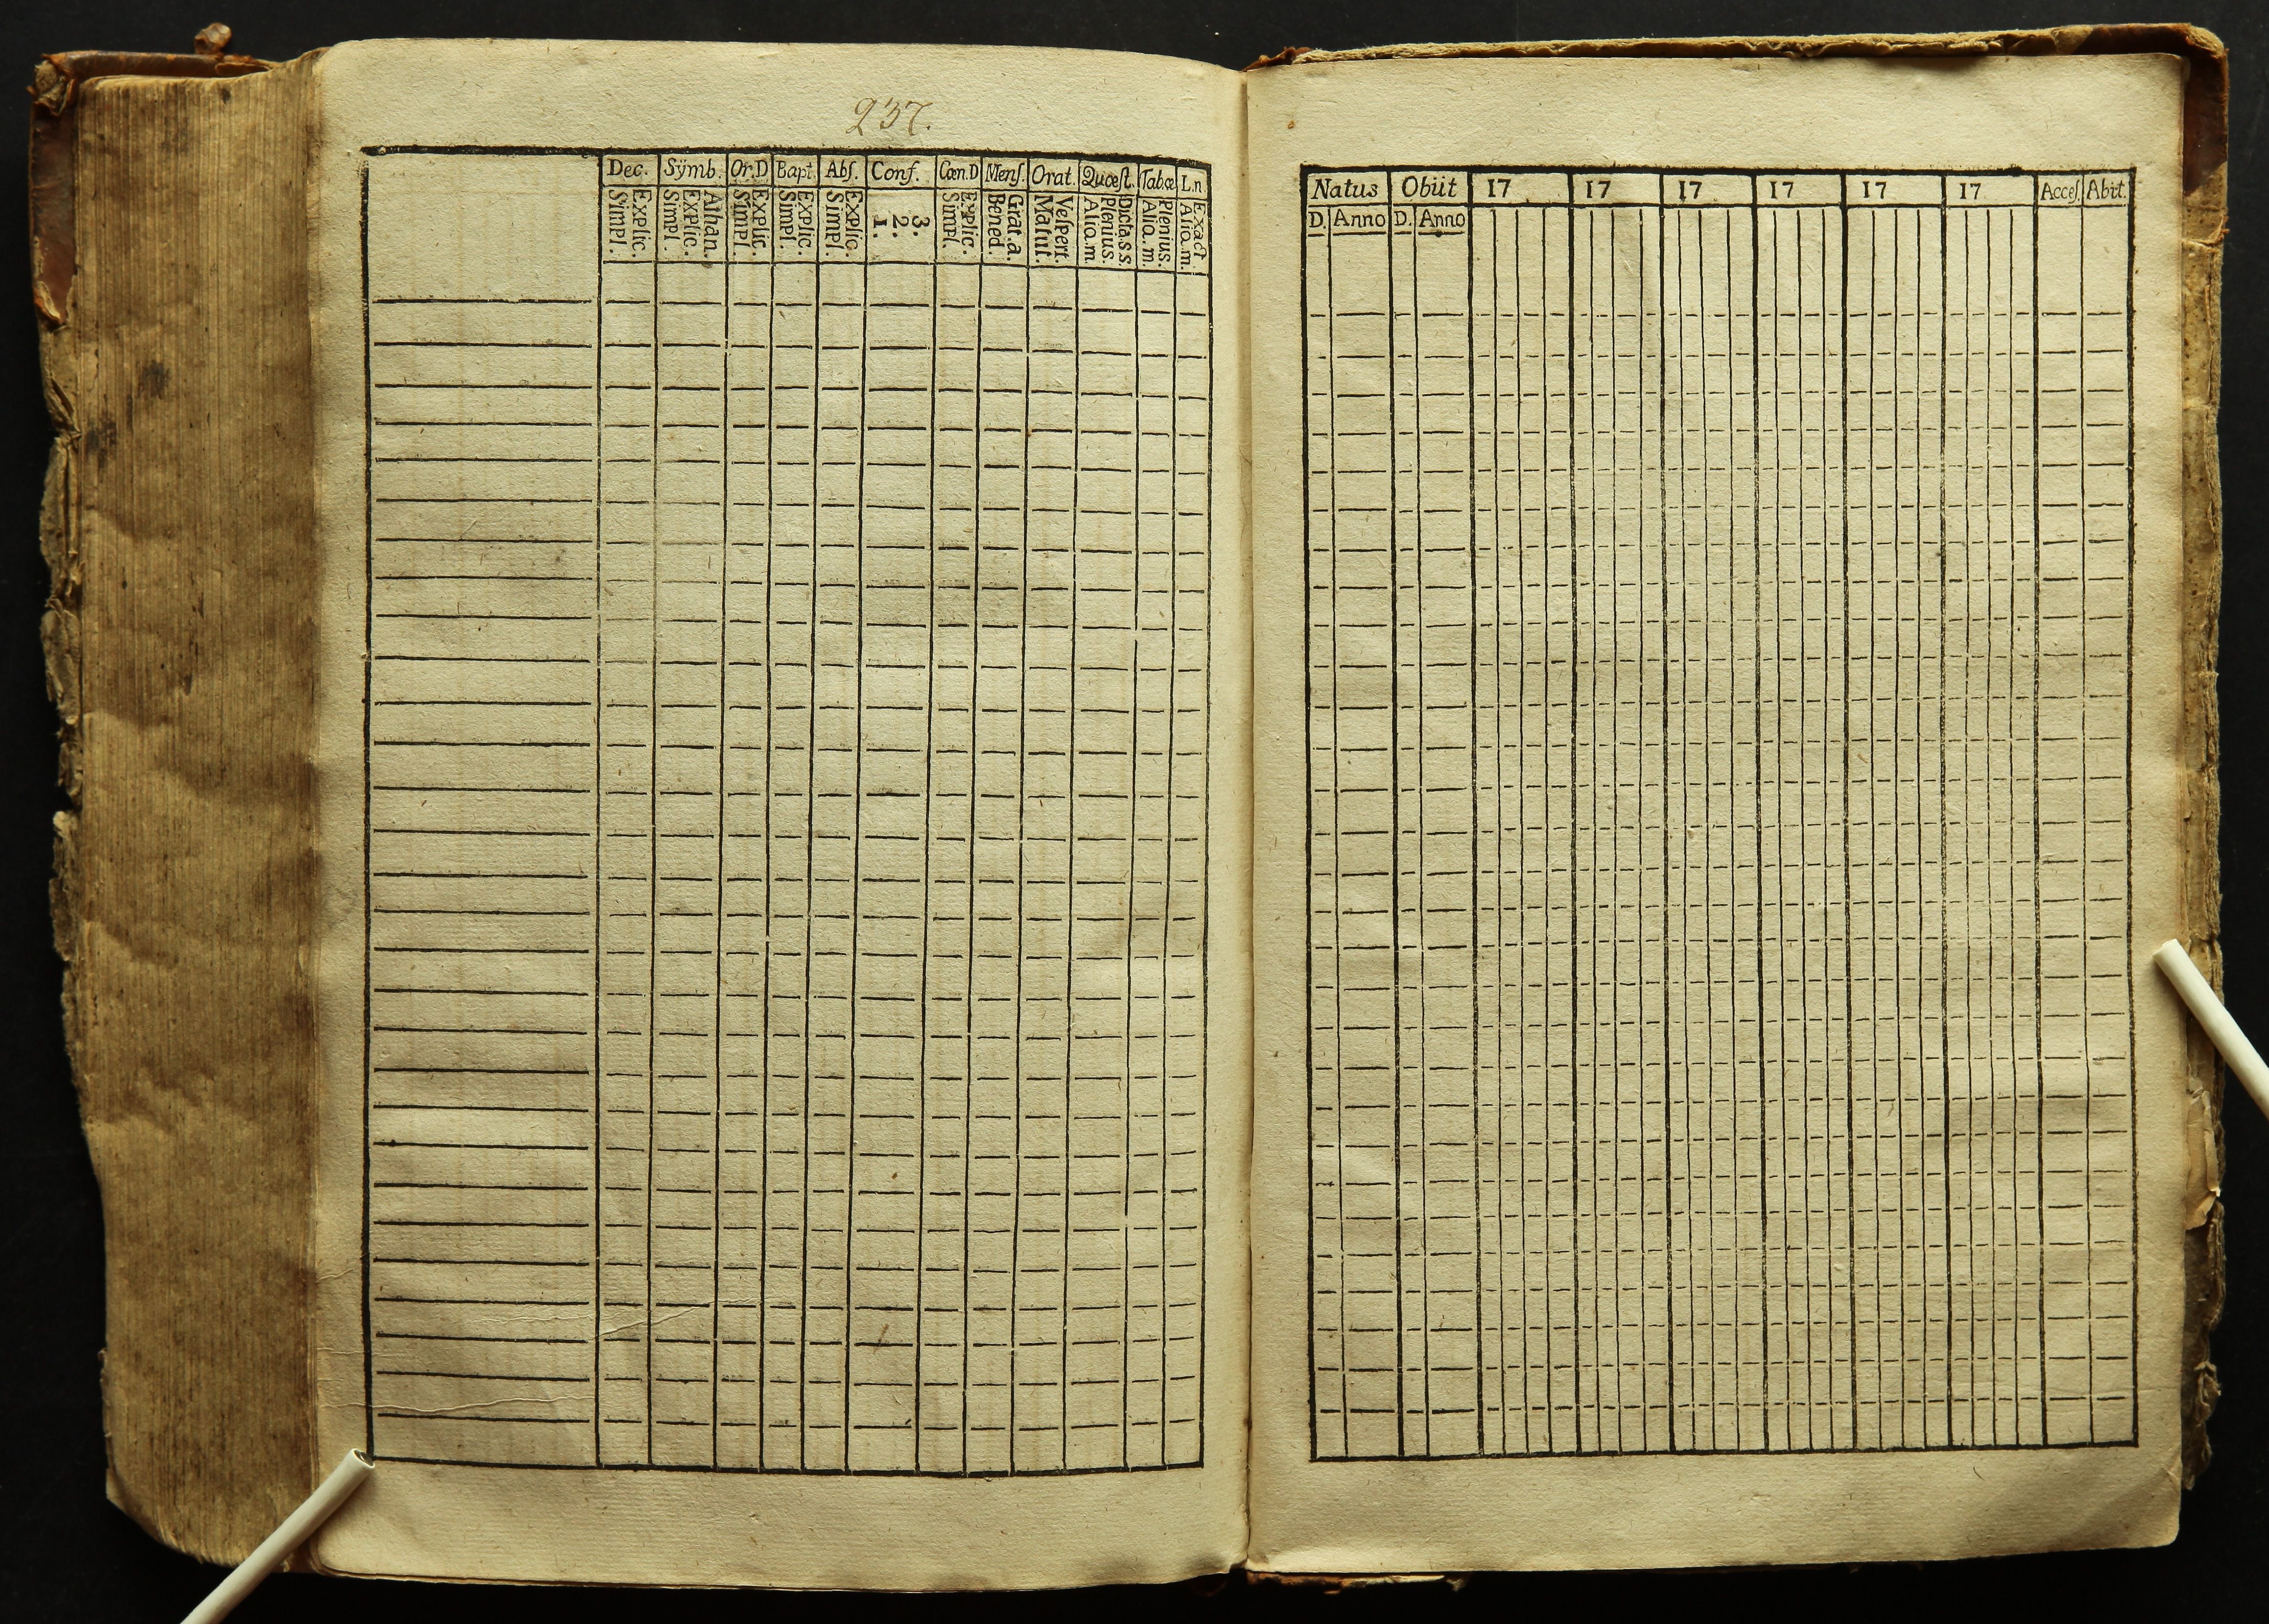 237.
Dec. Sÿmb. Or.D Bapt. Abſ. Conf. Cœn.D Menſ. Orat. Quœſt. Tabœ L.n
Explic. Simpl. Athan. Explic. Simpl. Explic. Simpl. Explic. Simpl. Explic. Simpl. 3. 2. 1. Explic. Simpl. Grat.a. Bened. Veſpert. Matut. Dicta.s.s. Plenius. Aliq.m. Plenius. Aliq.m. Exact Aliq.m.
Natus Obiit 17 17 17 17 17 17 Acceſ. Abiit.
D. Anno D. Anno